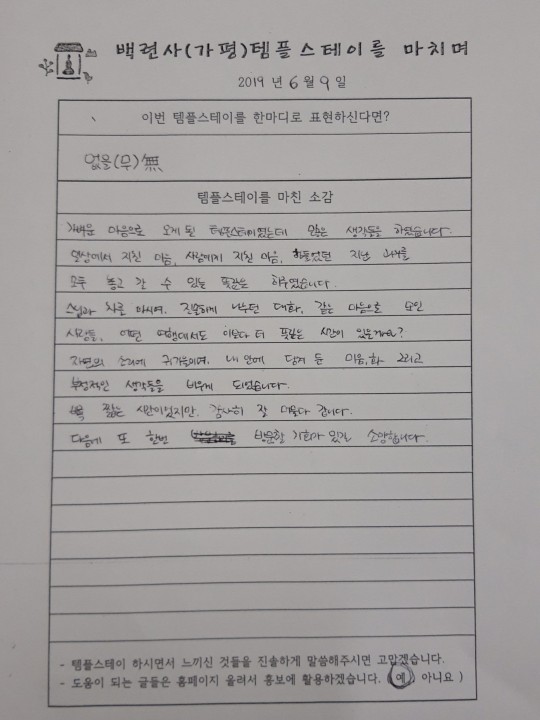 백련사(가평)템플스테이를 마치며
2019 년 6 월 9 일
이번 템플스테이를 한마디로 표현하신다면?
없을(무) 無
템플스테이를 마친 소감
가벼운 마음으로 오게 된 템플스테이였는데 많은 생각들을 하였습니다.
일상에서 지친 마음, 사람에게 지친 마음, 힘들었던 지난 과거를
모두 놓고 갈 수 있는 뜻깊은 하루였습니다.
스님과 차를 마시며, 진솔하게 나누던 대화, 같은 마음으로 모인
사람들, 어떤 여행에서도 이보다 더 뜻깊은 시간이 있을까요?
자연의 소리에 귀기울이며, 내 안에 담겨 둔 미움, 화 그리고
부정적인 생각들을 비우게 되었습니다.
짧은 시간이었지만, 감사히 잘 머물다 갑니다.
다음에 또 한번 방문할 기회가 있길 소망합니다.
- 템플스테이 하시면서 느끼신 것들을 진솔하게 말씀해주시면 고맙겠습니다.
- 도움이 되는 글들은 홈페이지 올려서 홍보에 활용하겠습니다. (예 / 아니요 )